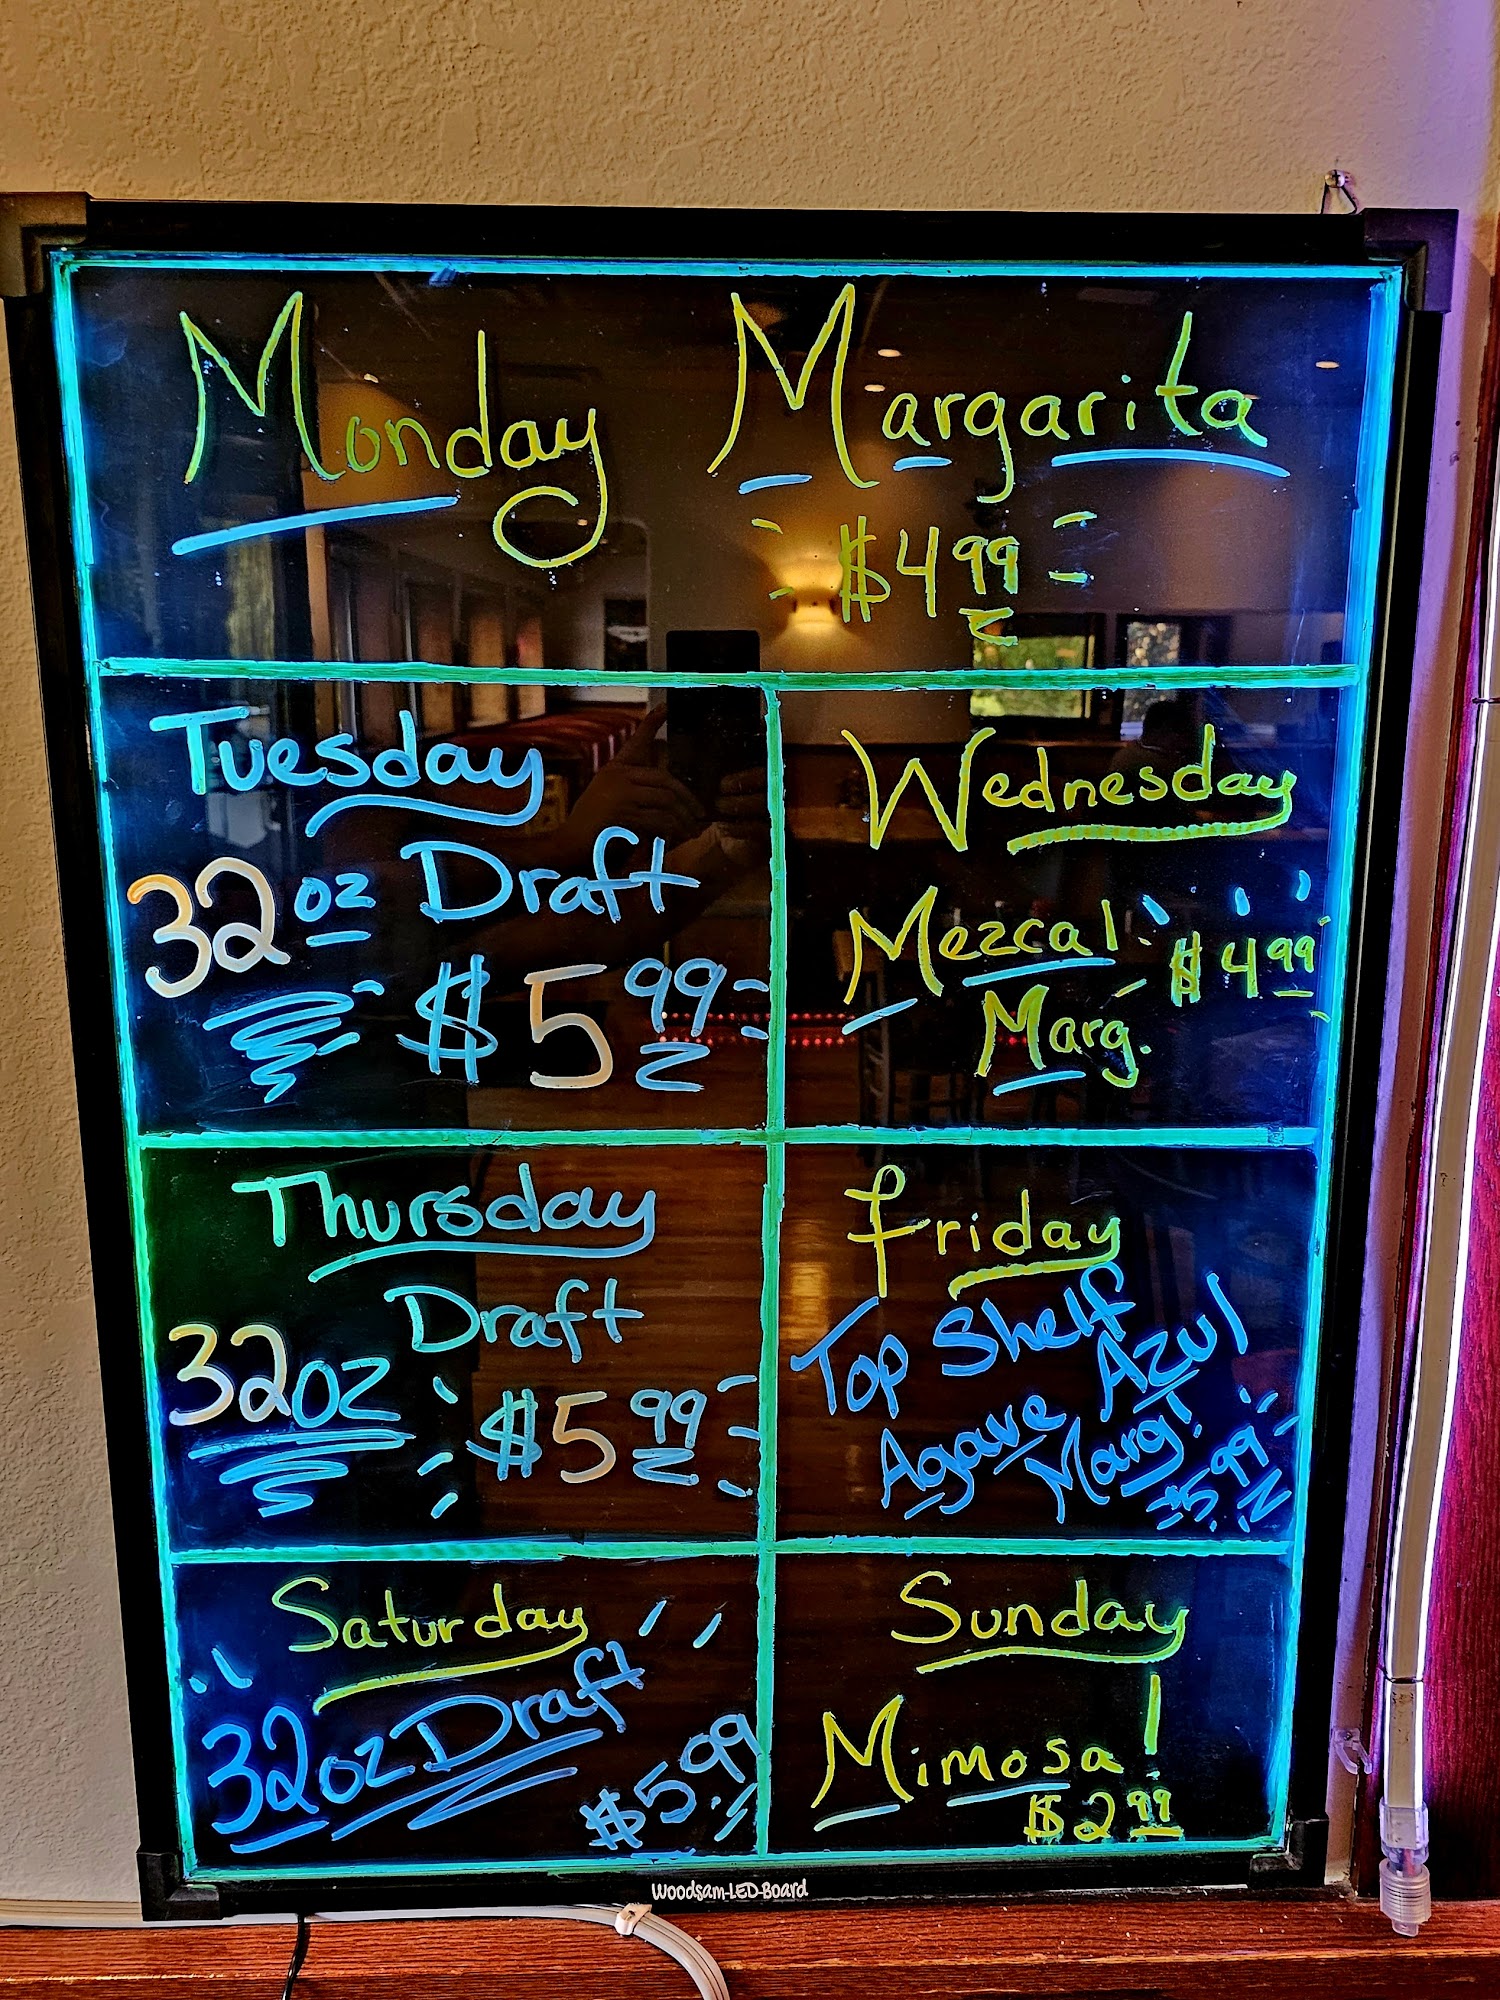 Monday Margarita
$4 99
Tuesday
32 oz Draft
$5 99
Wednesday
Mezcal $4 99
Marg.
Thursday
Draft
32oz $5 99
Friday
Top Shelf
Agave Azul
Marg!
$5 99
Saturday
32oz Draft
$5 99
Sunday
Mimosa!
$2 99
Woodsam-LED-Board